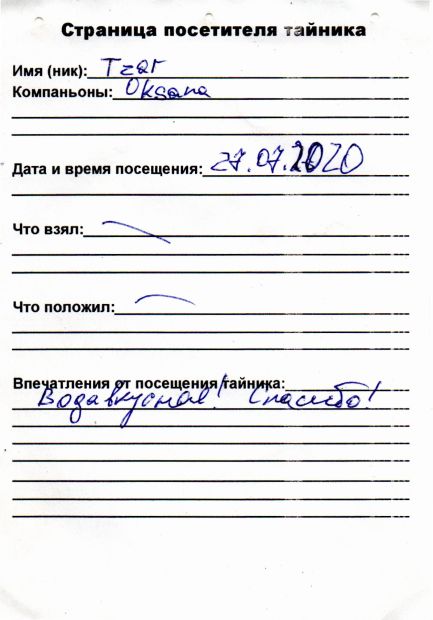 Страница посетителя тайника
Имя (ник): Tzar
Компаньоны: Oksana
Дата и время посещения: 27.07.2020
Что взял:
Что положил:
Впечатления от посещения тайника:
Вода вкусная! Спасибо!